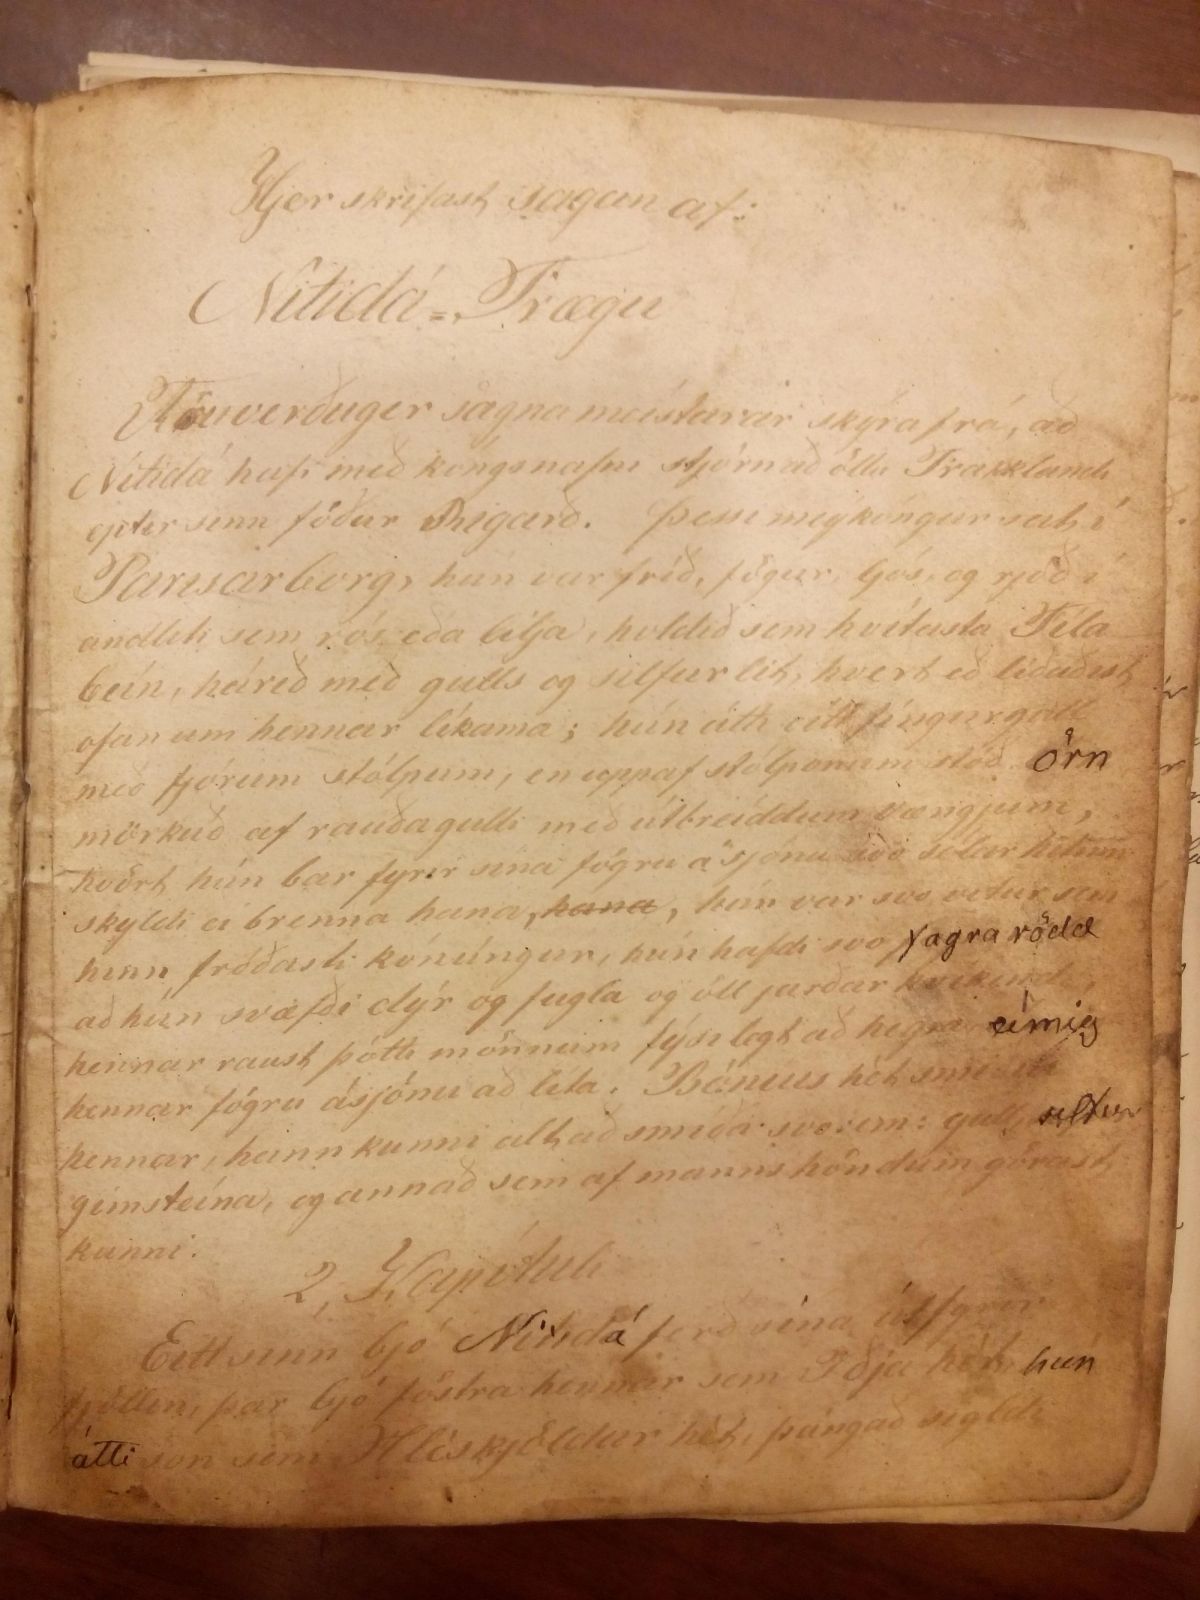 Hjer skrifast sagan af:
Nitidá=Frægu
Töluverðuger sagnameistarar skýra frá, að
Nitidá hafi með kóngsnafni stjórnað öllu Frakklandi
epter sinn föður Rigarð. Þessi meykóngur sat í
Parisarborg, hún var fríð, fögur, ljós, og rjóð í
andliti sem rós eða lilja, holdið sem hvítasta Fíla
bein, hárið með gulls og silfur lit, hvert eð liðaðist
ofan um hennar líkama; hún átti eitt fíngurgull
með fjórum stólpum, en uppaf stólponum stóð örn
mörkuð af rauðagulli með útbreiddum vængjum,
hvört hún bar fyrir sína fögru ásjónu svo sólar hitinn
skyldi ei brenna hana, hana, hún var svo vitur sem
hinn fróðasti konúngur, hún hafdi svo fagra rödd
að hún svæfði dýr og fugla og öll jarðar kvikindi,
hennar raust þótti mönnum fýsilegt að heyra einnig
hennar fögru ásjónu að líta. Bónius hét smiður
hennar, hann kunni alt að smíða svosem: gull, silfur
gimsteína, og annað sem af manns höndum górast
kunni.
2, Kapítuli
Eitt sinn bjó Nitidá ferð sína út fyrer
fjöllin, þar bjó fóstra hennar sem Iðja hét, hún
átti son sem Hléskjöldur hét, þángað sigldi